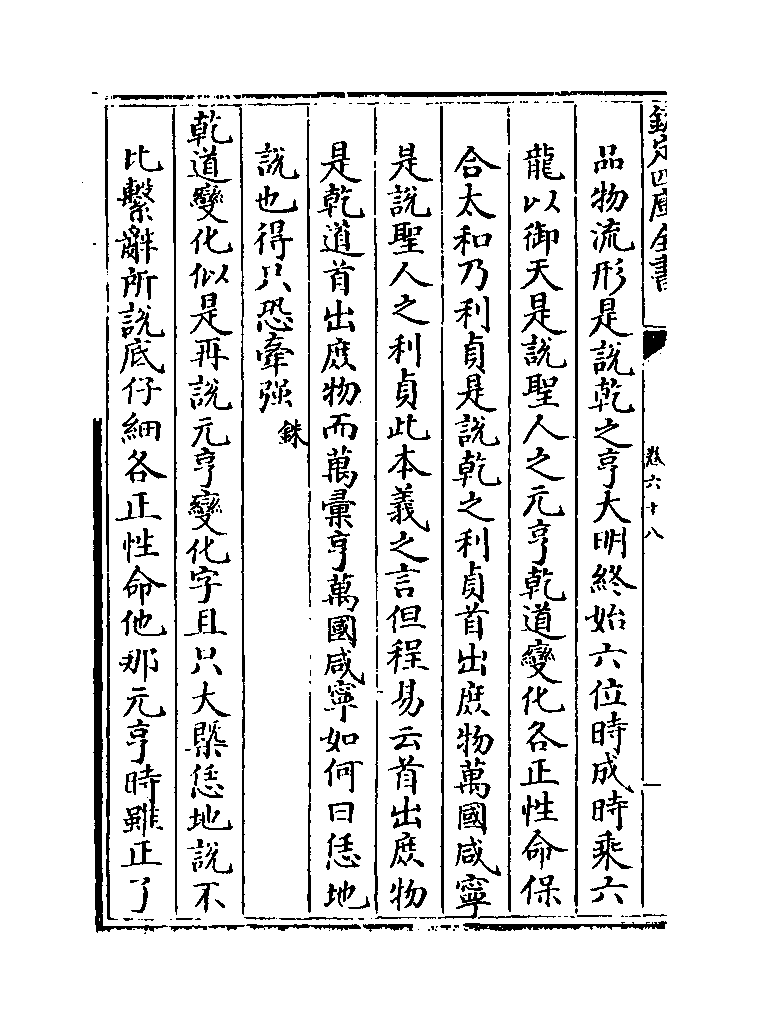 欽定四庫全書
卷六十八
一
品物流形是說乾之亨大明終始六位時成時乘六
龍以御天是說聖人之元亨乾道變化各正性命保
合太和乃利貞是說乾之利貞首出庶物萬國咸寧
是說聖人之利貞此本義之言但程易云首出庶物
是乾道首出庶物而萬彚亨萬國咸寧如何曰恁地
說也得只恐牽强銖
乾道變化似是再說元亨變化字且只大槩恁地說不
比繫辭所說底仔細各正性命他那元亨時雖正了